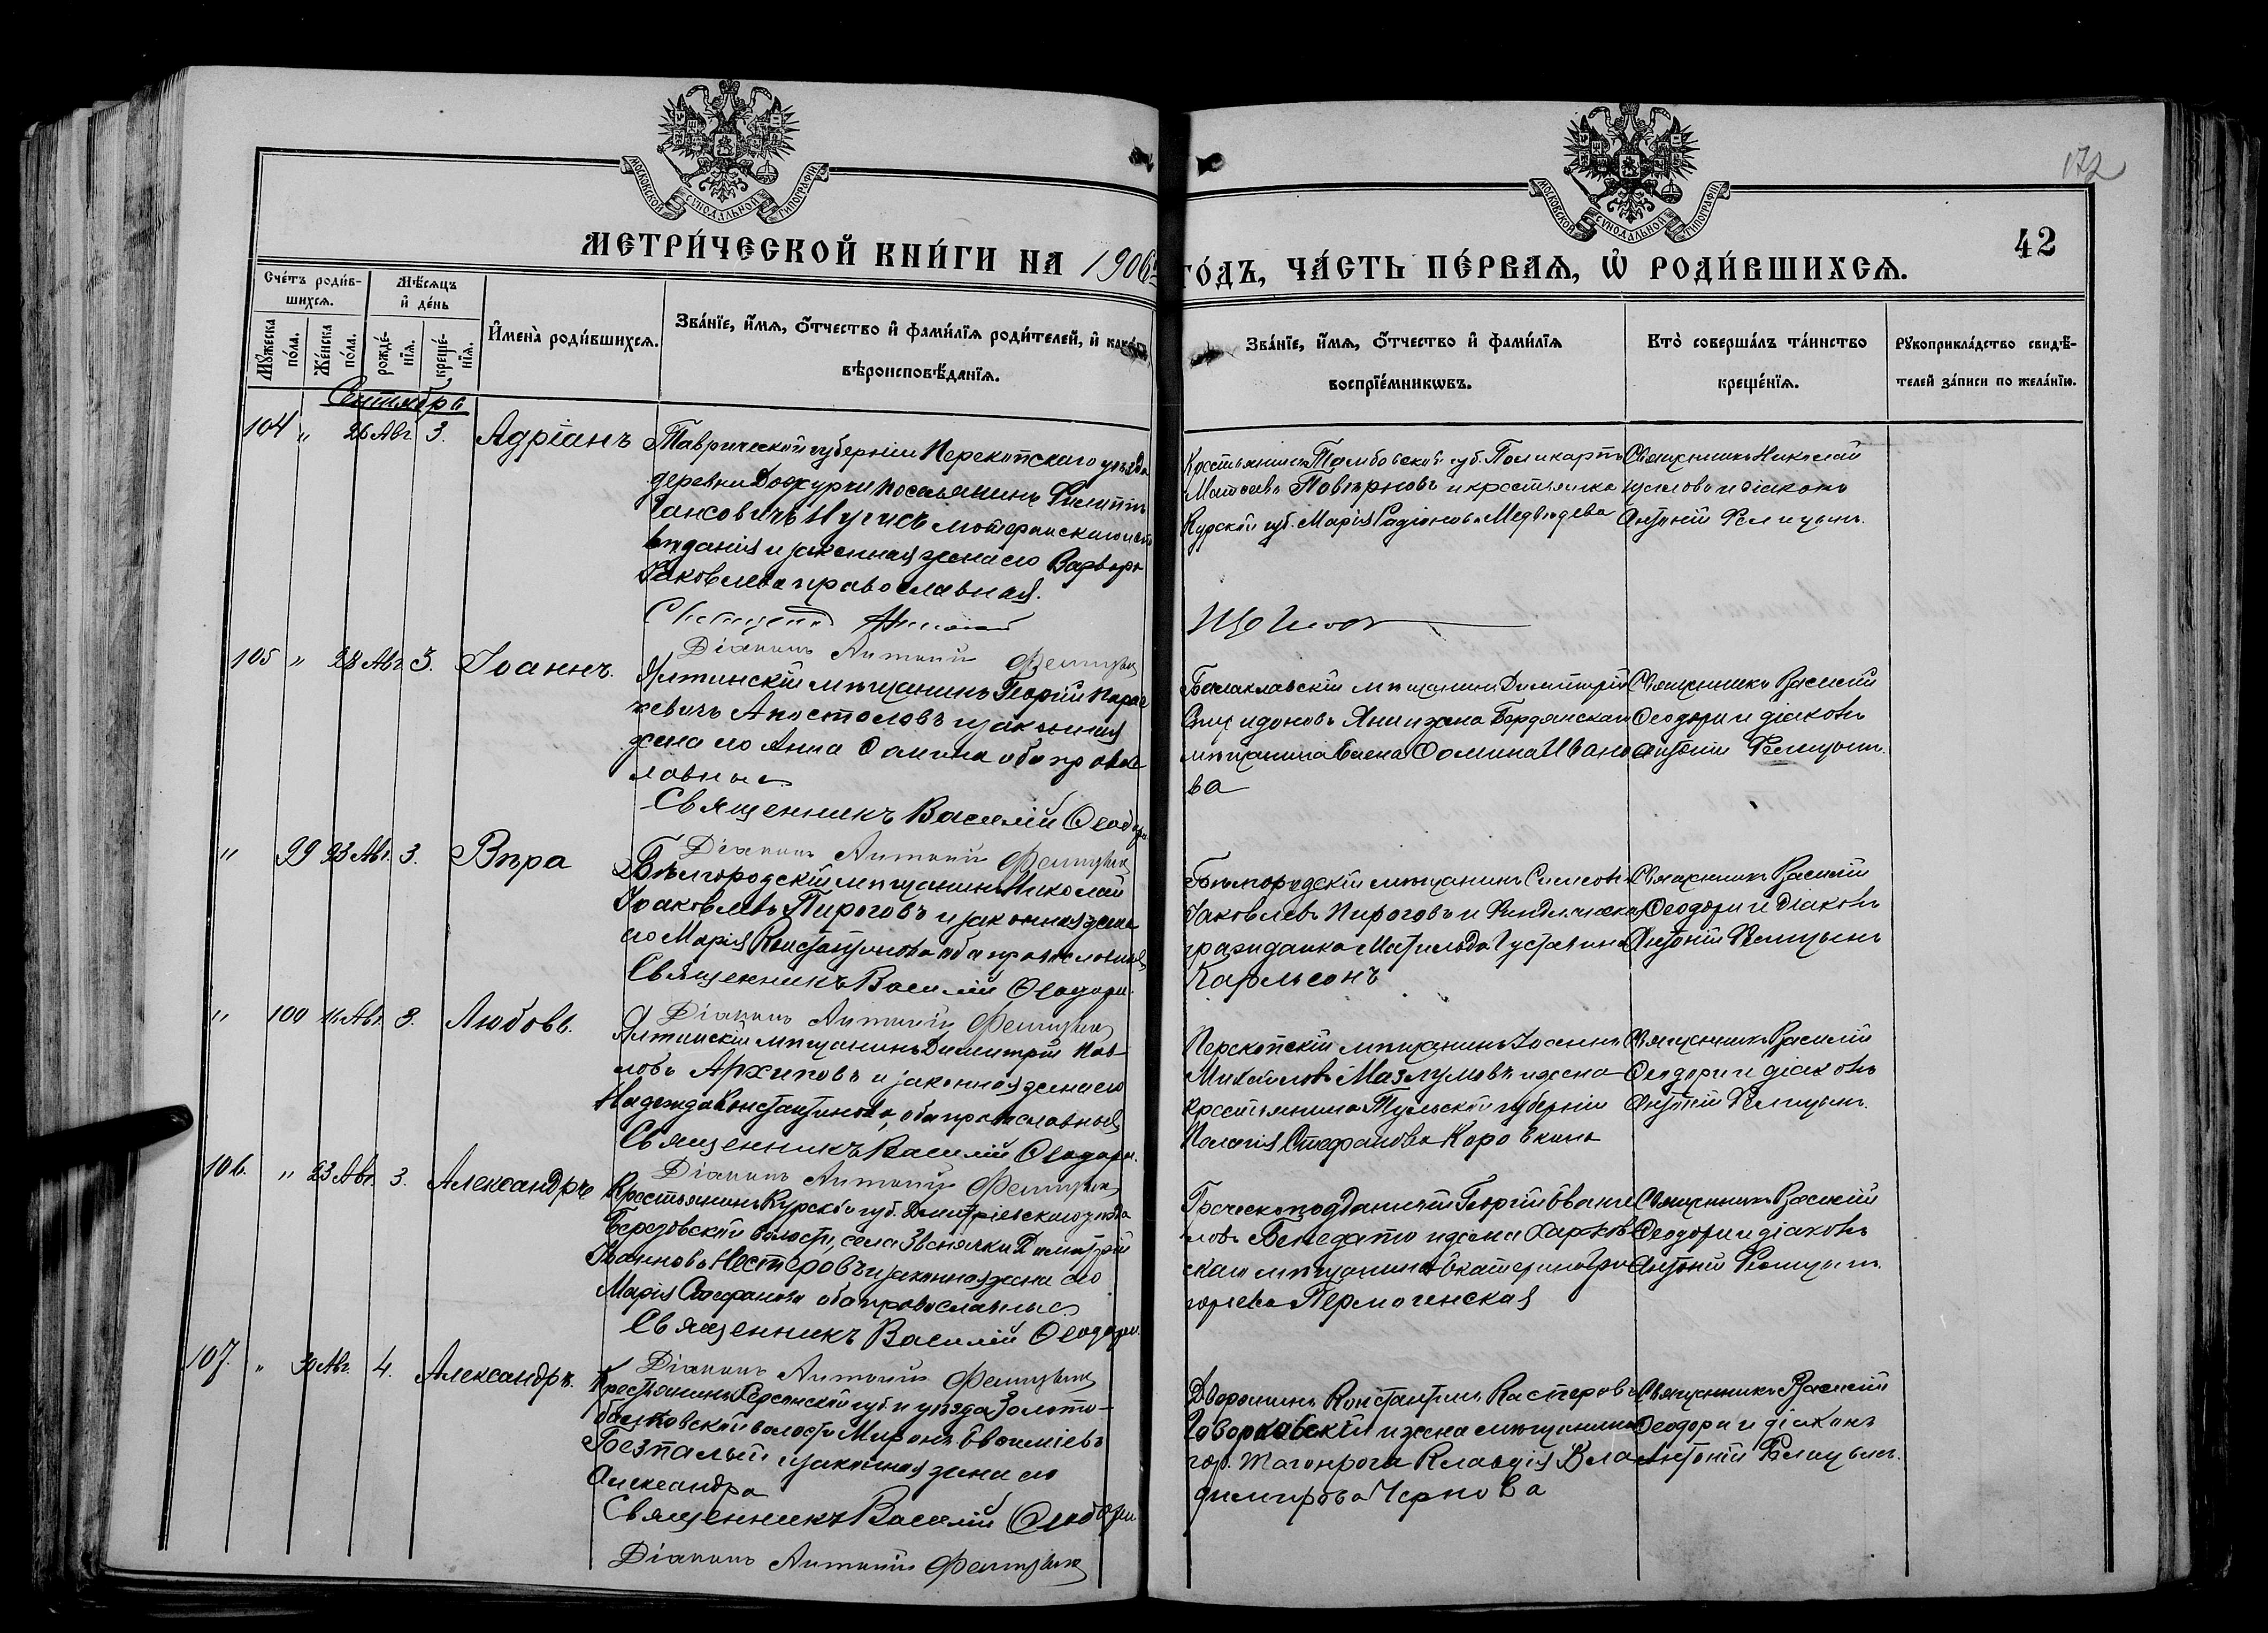 172
МОСКОВСКОЙ СѴНОДАЛЬНОЙ ТИПОГРАФІИ
МОСКОВСКОЙ СѴНОДАЛЬНОЙ ТИПОГРАФІИ
42
МЕТРИ́ЧЕСКОЙ КНИ́ГИ НА 1906
ГО́ДЪ, ЧА́СТЬ ПЕ́РВАѦ, Ѽ РОДИ́ВШИХСѦ.
Сче́тъ роди́в-
шихсѧ.
Мꙋ́жеска по́ла.
Же́нска по́ла.
Мѣ́сѧцъ
и҆ де́нь
рожде́-
нїѧ.
креще́-
нїѧ.
И҆мена̀ роди́вшихсѧ.
Зва́нїе, и҆́мѧ, ѻ҆́тчество и҆ фами́лїѧ роди́телей, и҆ како́гѡ
вѣроисповѣ́данїѧ.
Зва́нїе, и҆́мѧ, ѻ҆́тчество и҆ фами́лїѧ
воспрїе́мникѡвъ.
Кто̀ соверша́лъ та́инство
креще́нїѧ.
Рꙋкоприкла́дство свидѣ́-
телей за́писи по жела́нїю.
Сентябрь
104 " 26 Авг. 3. Адріанъ
Таврической губерніи Перекопскаго уѣзда
деревни поселянинъ Филиппъ
лютеранскаго
вѣданія и законная жена его Варвара
Яковлева православная.
Священникъ Николай
Діаконъ Антоній
Крестьянинъ Тамбовской губ. Поликарпъ
Матѳеевъ и крестьянка
Курской губ. Марія Родіонова Медвѣдева
Священникъ Николай
и діаконъ
Антоній
105 " 28 Авг. 3. Іоаннъ.
Ялтинскій мѣщанинъ Георгій
Апостоловъ и законная
жена его Анна Ѳомина оба правос
лавные
Священникъ Василій Ѳеодори
Діаконъ Антоній
Балаклавскій мѣщанинъ Димитрій
Спиридоновъ Яни и жена Бердянскаго
мѣщанина Елена Ѳомина Ивано
ва
Священникъ Василій
Ѳеодори и діаконъ
Антоній
" 99 23 Авг. 3. Вѣра
Бѣлгородскій мѣщанинъ Николай
Іаковлевъ Пироговъ и законная жена
его Марія Константинова оба православные
Священникъ Василій Ѳеодори.
Діаконъ Антоній
Бѣлгородскій мѣщанинъ Симеонъ
Іаковлевъ Пироговъ и Финляндская
гражданка Матильда Густавина
Карльсонъ
Священникъ Василій
Ѳеодори и діаконъ
Антоній
" 100 Авг. 3. Любовь.
Ялтинскій мѣщанинъ Димитрій Пав-
ловъ Архиповъ и законная жена его
Надежда Константинова, оба православные
Священникъ Василій Ѳеодори.
Діаконъ Антоній
Перекопскій мѣщанинъ Іоаннъ
Михайловъ Мазлумовъ и жена
крестьянина Тульской губерніи
Пелагія Стефанова
Священникъ Василій
Ѳеодори и діаконъ
Антоній
106. " 23 Авг. 3. Александръ
Крестьянинъ Курской губ. Дмитріевскаго уѣзда
Березовской волости, села Звенячки Димитрій
Іоанновъ Нестеровъ и законная жена его
Марія Стефанова оба православные
Священникъ Василій Ѳеодори.
Діаконъ Антоній
Греческоподданный Георгій Еванге
ловъ Бенедато и жена Харьков
скаго мѣщанина Екатерина Гри
горьева
Священникъ Василій
Ѳеодори и діаконъ
Антоній
107. " 30 Авг. 4. Александръ.
Крестьянинъ Херсонской губ. и уѣзда Золото-
балковской волости Миронъ Евѳиміевъ
Безпалый и законная жена его
Александра
Священникъ Василій Ѳеодори
Діаконъ Антоній
Дворянинъ Константинъ Касперовъ
Говорковскій и жена мѣщанина
гор. Таганрога Клавдія Вла
димирова Чернова
Священникъ Василій
Ѳеодори и діаконъ
Антоній